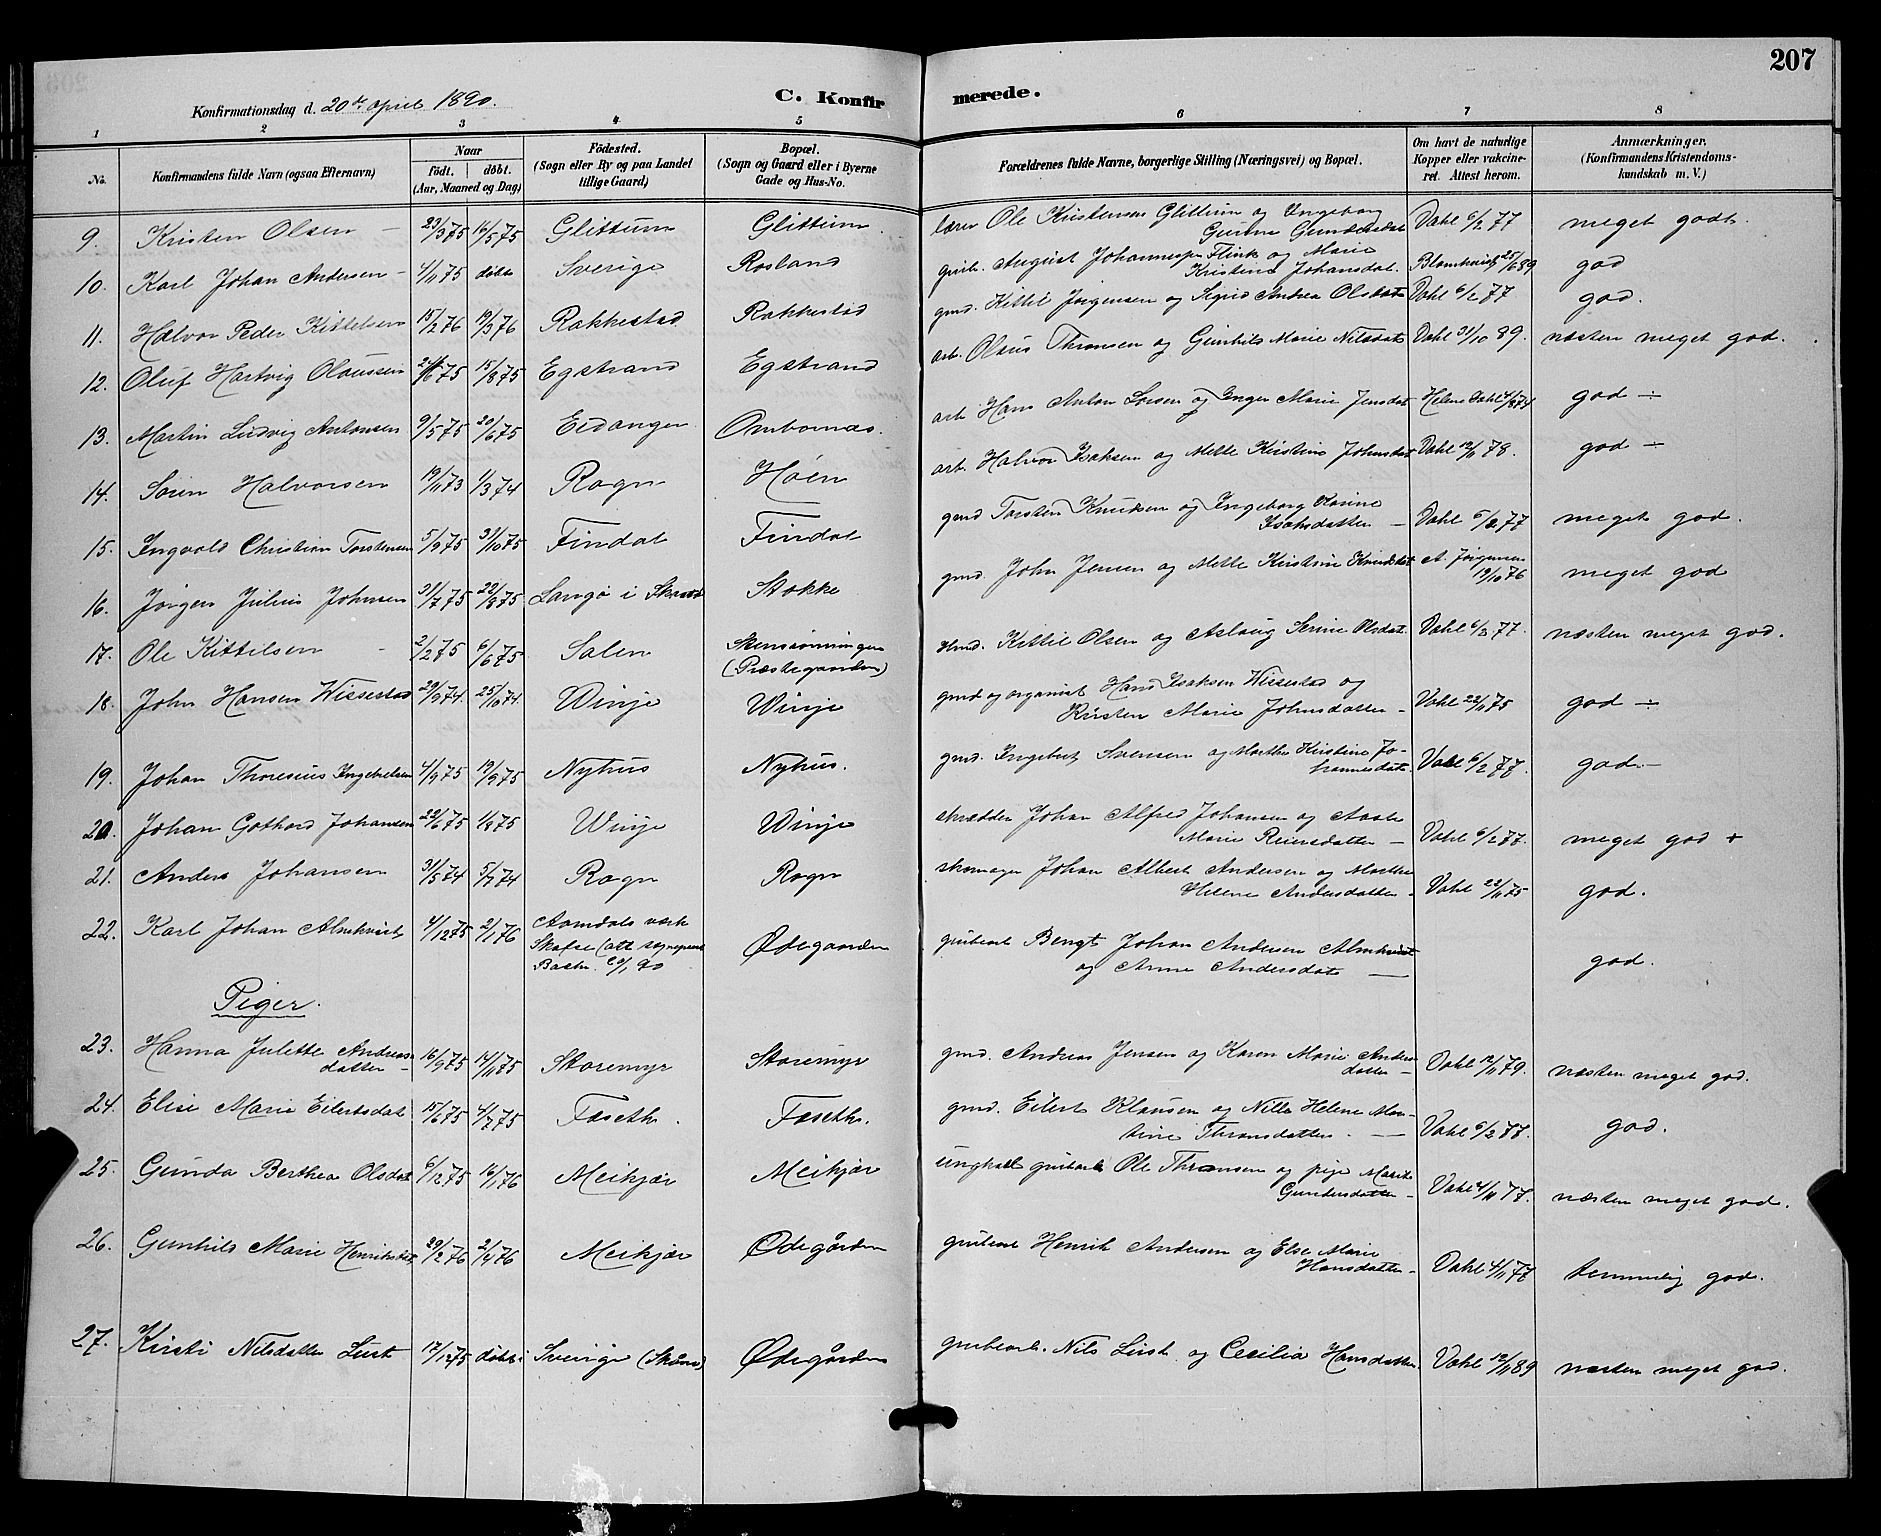 207
Konfirmationsdag d. 20de april 1890.
C. Konfirmerede.
1 2 3 4 5 6 7 8
No.
Konfirmandens fulde Navn (ogsaa Efternavn)
Naar
födt. döbt.
(Aar, Maaned og Dag)
Födested.
(Sogn eller By og paa Landet
tillige Gaard)
Bopæl.
(Sogn og Gaard eller i Byerne
Gade og Hus-No.
Forældrenes fulde Navne, borgerlige Stilling (Næringsvei) og Bopæl.
Om havt de naturlige
Kopper eller vakcine-
ret. Attest herom.
Anmærkninger.
(Konfirmandens Kristendoms-
kundskab m. V.)
9. Kristen Olsen – 23/3 75 16/5 75 Glittum Glittum lærer Ole Kristensen Glittum og Ingeborg
Gurine Gundersdat Vahl 6/2 77 meget godt.
10. Karl Johan Andersen – 4/11 75 døbt Sverige Rosland grub. August Johannesen Flink og Marie
Kristine Johansdat. Blomkvist 25/6 89 god
11. Halvor Peder Kittelsen 15/2 76 19/3 76 Rakkestad Rakkestad gmd. Kittil Jørgensen og Sigrid Andrea Olsdat Vahl 6/2 77 god.
12. Oluf Hartvig Olaussen 24/6 75 15/8 75 Egstrand Egstrand arb. Olaus Thronsen og Gunhild Marie Nilsdat Vahl 31/10 89. næsten meget god.
13. Martin Ludvig Antonsen 9/5 75 20/6 75 Eidanger Ombornæs. arb. Hans Anton Larsen og Inger Marie Jensdat Helene Dahl 4/8 74 god ÷
14. Søren Halvorsen 19/11 73 1/3 74 Rogn Høen arb. Halvor Isaksen og Mette Kirstine Johnsdat Vahl 12/11 78. god ÷
15. Ingvald Christian Torstensen 5/9 75 31/10 75 Findal Findal gmd Torsten Knudsen og Ingeborg Karine
Isaksdatter – Vahl 6/2 77 meget god.
16. Jörgen Julius Johnsen 31/7 75 22/8 75 Langø i Skaatø Stokke gmd. John Jensen og Mette Kirstine Knudsdat A. Jørgensen
19/10 76 meget god
17. Ole Kittilsen – 2/2 75 6/6 75 Salen
(Præstegaarden) Hmd. Kittil Olsen og Aslaug Serine Olsdat. Vahl 6/2 77. næsten meget god.
18. John Hansen Wissestad 29/9 74. 25/10 74. Winje Winje gmd og organist Hans Isaksen Wissestad og
Kirsten Marie Johnsdatter – Vahl 22/11 75 god ÷
19. Johan Thoresius Ingebretsen 4/9 75 19/9 75 Nyhus Nyhus. gmd. Ingebret Svensen og Marthe Kirstine Jo-
hannesdat. Vahl 6/2 77. god. –
20. Johan Gothard Johansen 22/6 75 1/8 75 Winje Winje skrædder Johan Alfred Johansen og Aasle
Marie Reiersdatter – Vahl 6/2 77. meget god +
21. Anders Johansen 31/5 74 5/7 74 Rogn Rogn skomager Johan Albert Andersen og Marthe
Helene Andersdatter – Vahl 22/11 75 god.
22. Karl Johan Almkvist 4/12 75 2/1 76 Aamdals værk
Skafse (att sogneprest
Ødegaarden grubearb Bengt Johan Andersen Almkvist
og Anne Andersdat – god.
Piger.
23. Hanna Julette Andreas-
datter – 16/9 75 14/11 75 Storemyr Storemyr gmd. Andreas Jensen og Karen Marie Anders
datter – Vahl 12/11 79. næsten meget god.
24. Elise Marie Eilertsdat. 15/6 75 4/7 75 Faseth. Faseth. gmd. Eilert Klausen og Nille Helene Mar-
tine Thronsdatter. – Vahl 6/2 77. god.
25. Gunda Berthea Olsdat 6/12 75 16/1 76 Meikjær Meikjær ungkarl grubearb Ole Thronsen og pige Marit
Gundersdatter – Vahl 4/11 77. næsten meget god.
26. Gunhild Marie Henriksdat. 29/2 76 2/4 76 Meikjær Ødegården grubearb Henrik Andersen og Else Marie
Hansdatter – Vahl 4/11 77 temmelig god.
27. Kirsti Nilsdatter Lust 17/12 75 døbt i Sverige (Skåne) Ødegården grubearb. Nils Lust og Cecilia Hansdatter. Vahl 12/11 89 næsten meget god.